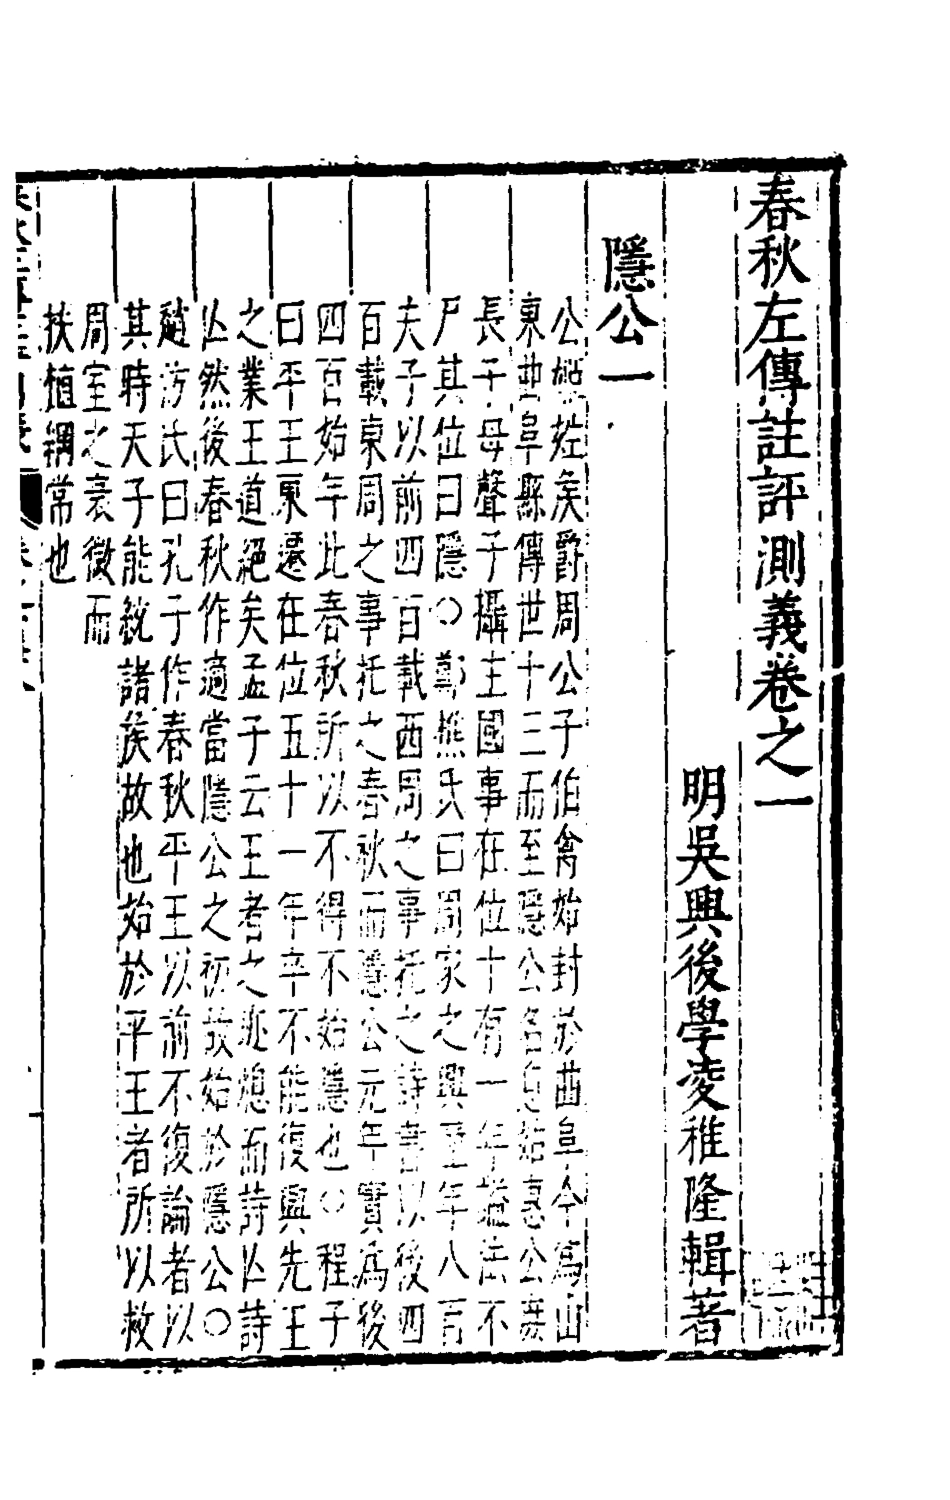 春秋左傳註評測義卷之一
明吳興後學凌稚隆輯著
隱公一
公姬姓矦爵周公子伯禽始封於曲阜今為山
東曲阜縣傳世十三而至隱公名息姑惠公庶
長子母聲子攝主國事在位十有一年謚法不
尸其位曰隱○鄭樵氏曰周家之興至年八百
夫子以前四百載西周之事托之詩書以後四
百載東周之事托之春秋而隱公元年實為後
四百始年此春秋所以不得不始隱也○程子
曰平王東遷在位五十一年卒不能復興先王
之業王道絕矣孟子云王者之迹熄而詩亾詩
亾然後春秋作適當隱公之初故始於隱公○
趙汸氏曰孔子作春秋平王以前不復論者以
其時天子能統諸矦故也始於平王者所以救
周室之衰微而
扶植綱常也